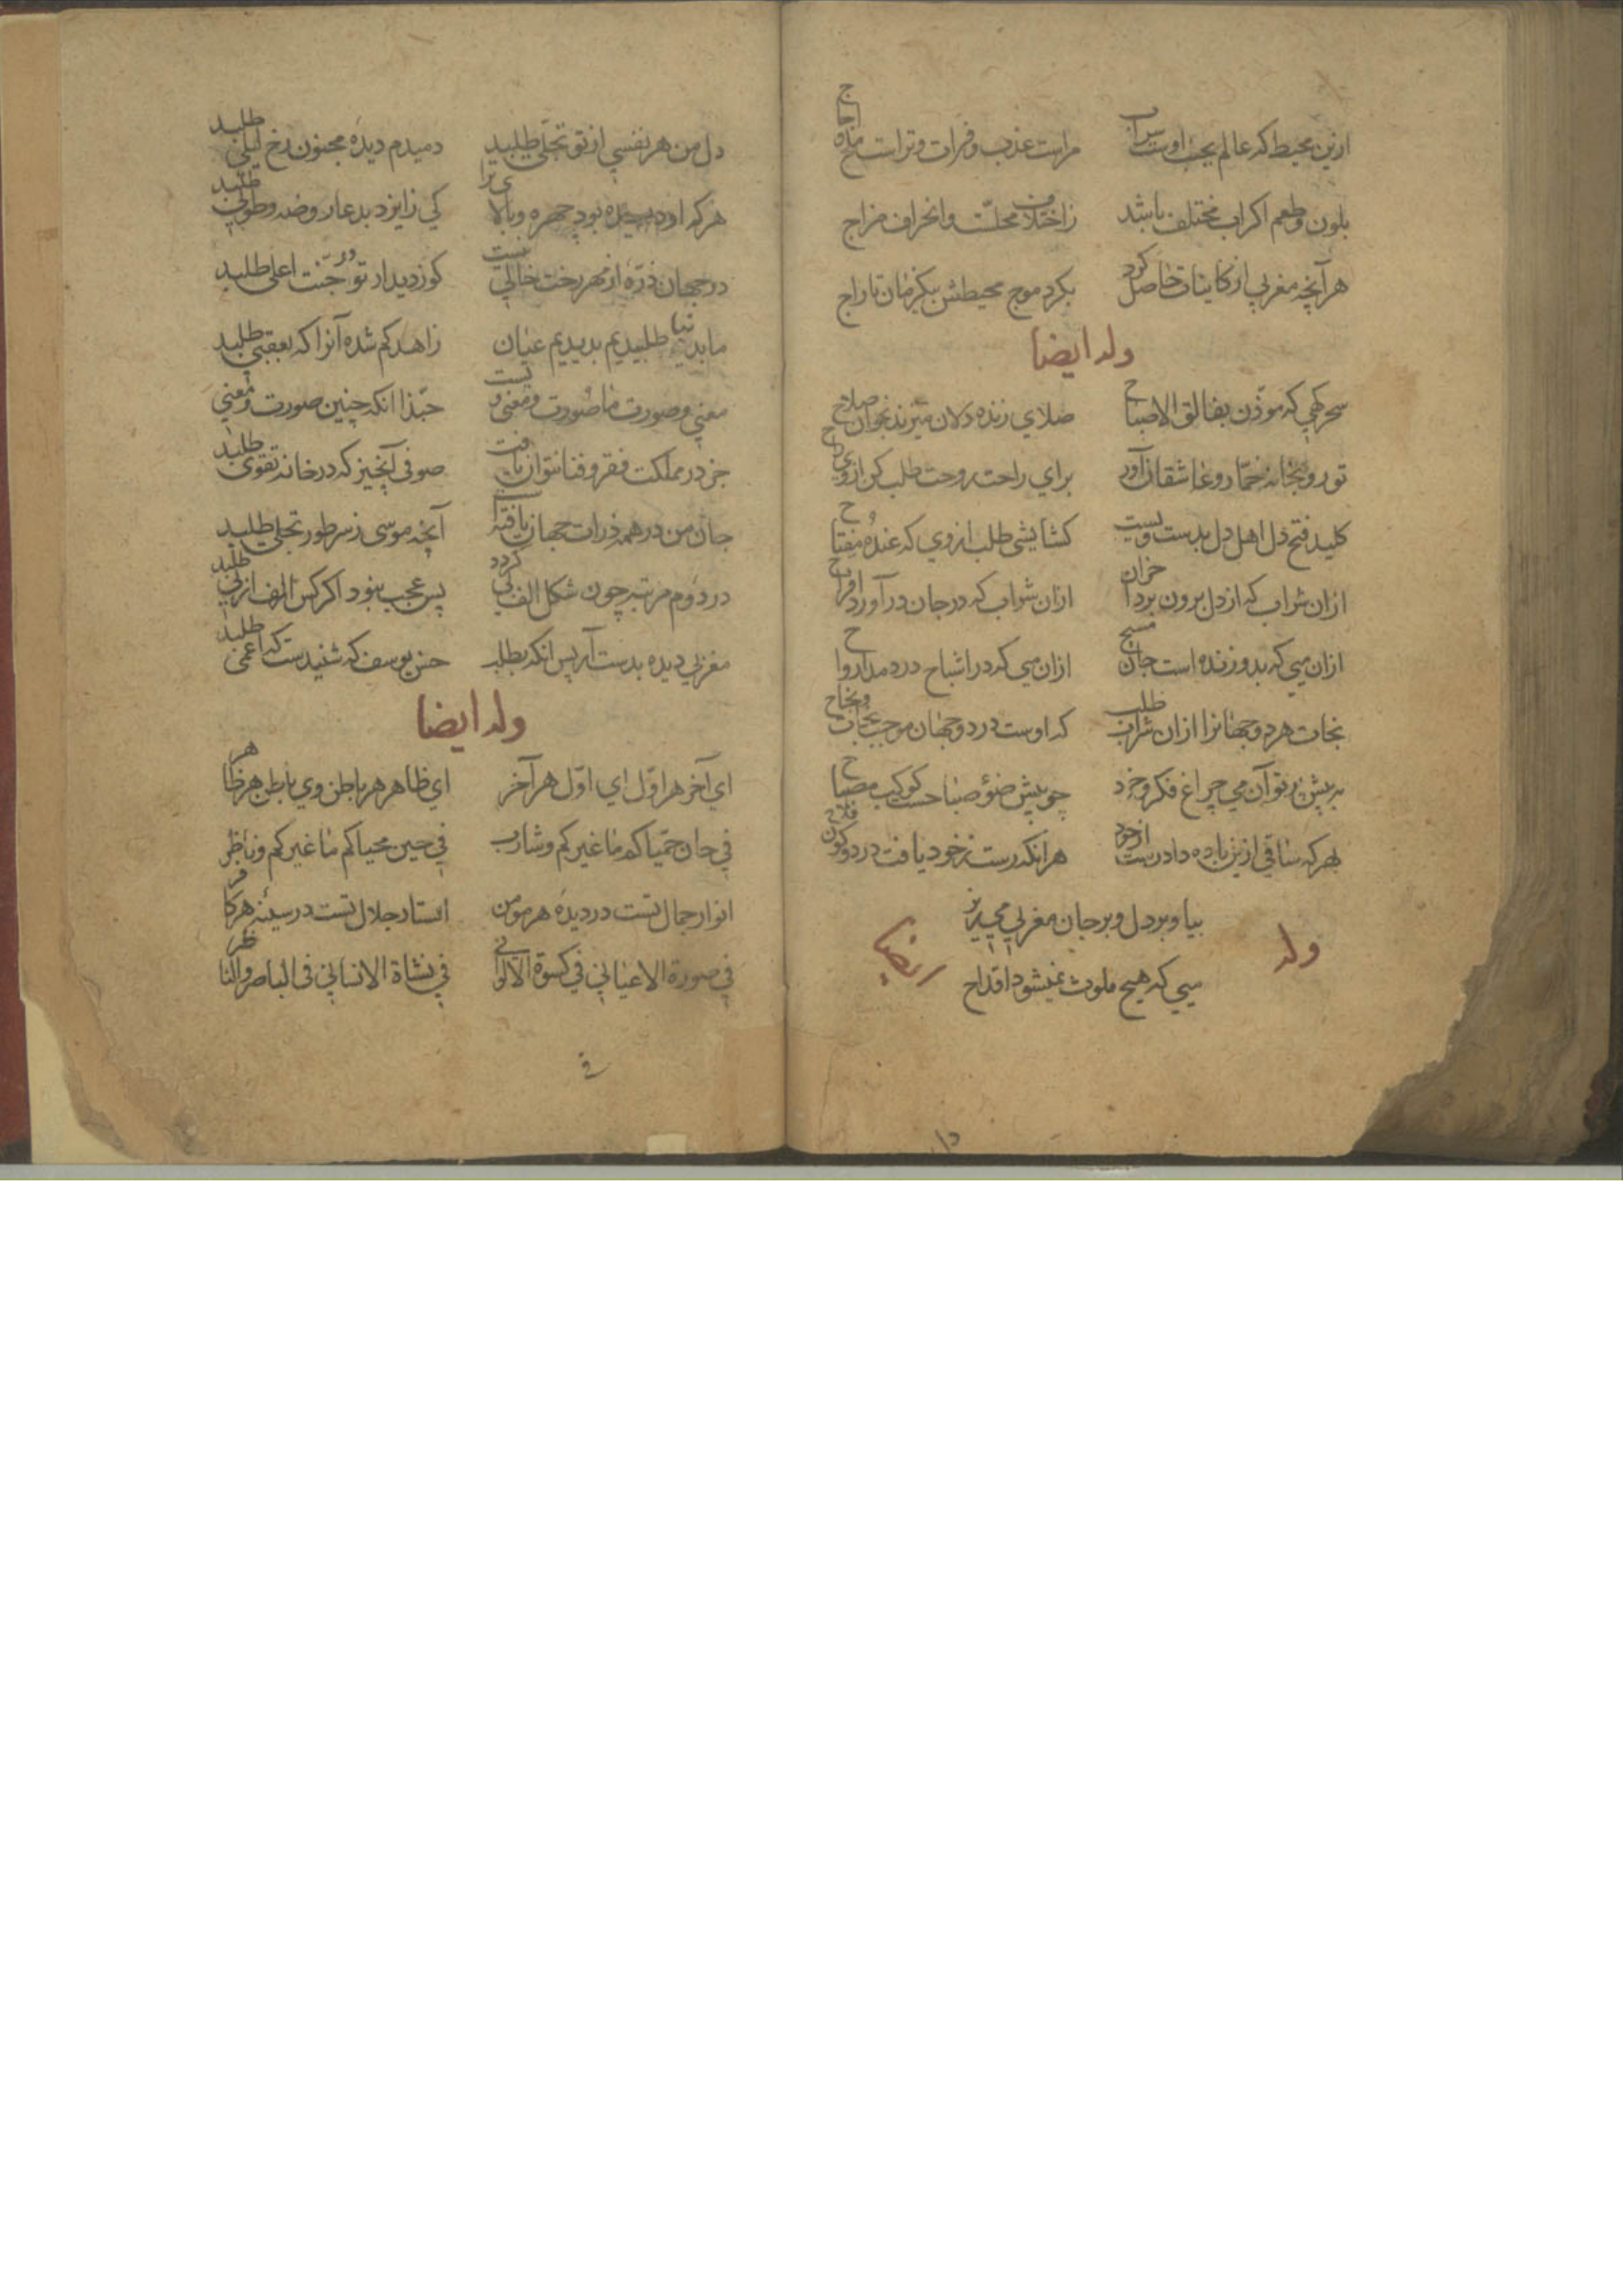 ازین محیط که عالم بجنب اوست سراب مراست عذب و فرات و تراست ملح اجاج
بلون و طعم اکر اب مختلف باشد ز اختلاف محلست و انحراف مزاج
هر آنچه مغربی از کاینات حاصل کرد بکرد موج محیطش بیکزمان تاراج
وله ایضا
سحرکهی که موذن بفالق الاصباح صلای زنده دلان میزند بخوان صلاح
تو رو بخانه خمار و عاشقان آور برای راحت روحت طلب کن از وی راح
کلید فتح دل اهل دل بدست ویست کشایشی طلب از وی که عنده مفتاح
ازان شراب که از دل برون برد احزان ازان شراب که در جان در آورد افراح
ازان می که بدو زنده است جان مسیح ازان می که در اشباح دردمد ارواح
نجات هر دو جهانرا ازان شراب طلب که اوست در دو جهان موجب نجات و نجاح
به پیش پرتو آن می چراغ فکر و خرد چو پیش ضؤ صباحست کوکب مصباح
بهر که ساقی ازین باده داد رست از خود هر انکه رست ز خود یافت در دو کون فلاح
بیا و بر دل و بر جان مغربی می ریز
وله ایضا
میی که هیچ ملوث نمیشود اقداح
دل من هر نفسی از تو تجلی طلبید دمبدم دیده مجنون رخ لیلی طلبید
هر که او دیده بود چهره و بالای ترا کی ز ایزد بدعا روضه و طوبی طلبید
در جهان ذره از مهر رخت خالی نیست کوز دیدار تو در جنت اعلی طلبید
ما بدنیا طلبیدیم بدیدیم عیان زاهد کم شده آنرا که بعقبی طلبید
معنی و صورت ما صورت و معنی ویست حبذا انکه چنین صورت و معنی طلبید
جز در مملکت فقر و فنا نتوان یافت صوفی آنچیز که در خانه تقوی طلبید
جان من در همه ذرات جهان یافته است آنچه موسی ز سر طور تجلی طلبید
در دوم مرتبه چون شکل الف بی کردد پس عجب نبود اکر کس الف از بی طلبید
مغربی دیده بدست آر پس انکه بطلب حسن یوسف که شنیدست که اعمی طلبید
وله ایضا
ای آخر هر اول ای اول هر آخر ای ظاهر هر باطن وی باطن هر ظاهر
فی حان حمیاکم ما غیرکم و شارب فی حین محیاکم ما غیرکم و ناظر
انوار جمال تست در دیده هر مومن استار جلال تست در سینه هر کافر
فی صورة الاعیانی فی کسوة الالوانی فی نشاة الانسانی فی الباصر و الناظر
فی